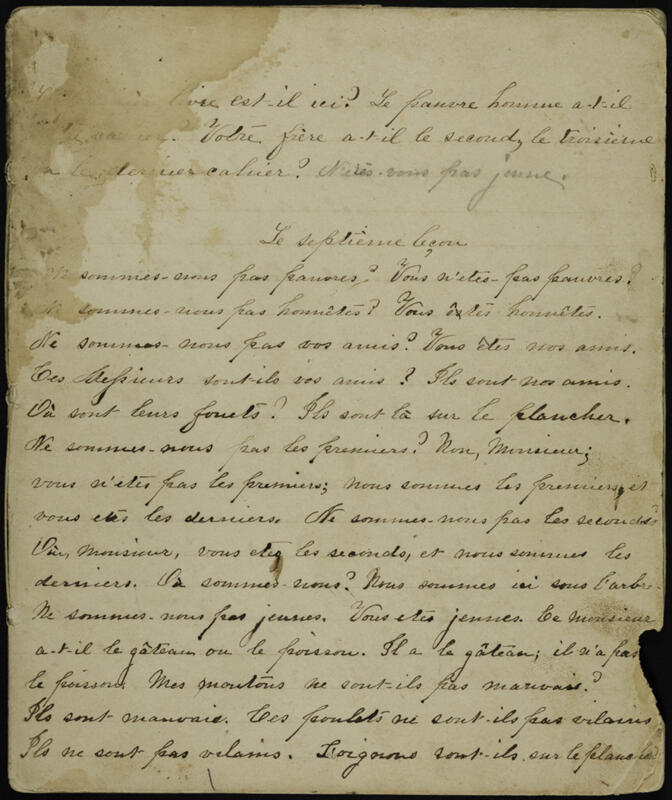 livre est-il ici? Le pauvre homme a-t-il
? Votre frère a-t-il le second, le troisième
le dernier cahier? N'êtes-vous pas jeune.
Le septième leçon
Ne sommes-nous pas pauvres? Vous n'etes-pas pauvres.
Ne sommes-nous pas honnêtes? Vous êtes honnêtes.
Ne sommes-nous pas vos amis? Vous êtes nos amis.
Ces Messieurs sont-ils vos amis? Ils sont nos amis.
Où sont leurs fouets? Ils sont là sur le plancher.
Ne sommes-nous pas les premiers? Non, Monsieur;
vous n'etes pas les premiers; nous sommes les premiers, et
vous etes les derniers. Ne sommes-nous pas les seconds?
Oui, monsieur, vous etes les seconds, et nous sommes les
derniers. Où sommes-nous? Nous sommes ici sous l'arbre.
Ne sommes-nous pas jeunes. Vous etes jeunes. Ce monsieur
a-t-il le gâteau ou le poisson. Il a le gâteau; il n'a pas
le poisson. Mes moutons ne sont-ils pas mauvais?
Ils sont mauvais. Ces poulets ne sont-ils pas vilains
Ils ne sont pas vilains. L'oignons sont-ils sur le plancher